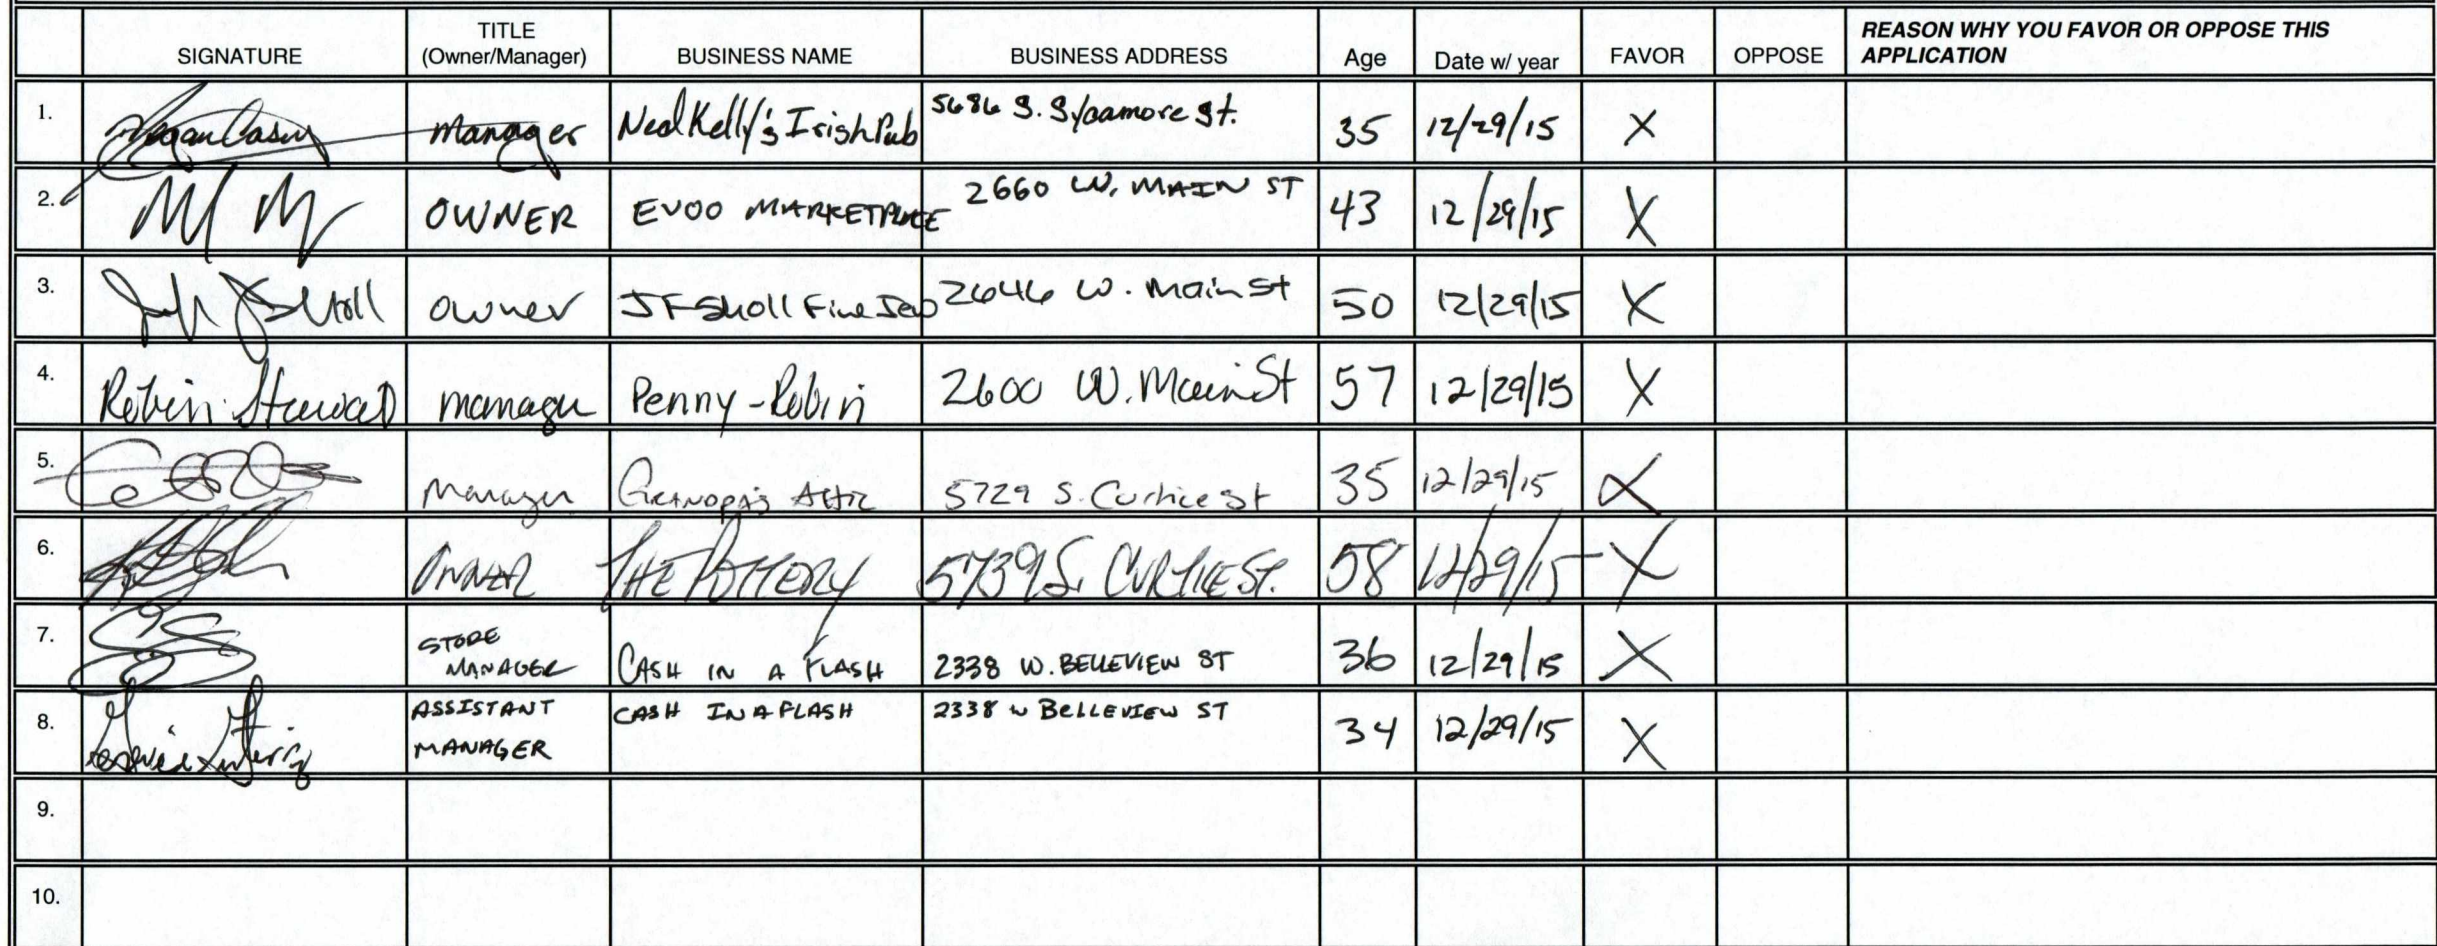 SIGNATURE TITLE (Owner/Manager) BUSINESS NAME BUSINESS ADDRESS Age Date w/ year FAVOR OPPOSE REASON WHY YOU FAVOR OR OPPOSE THIS APPLICATION
1. Manager Ned Kelly's Irish Pub 5686 S. Sycamore St. 35 12/29/15 X
2. OWNER EVOO MARKETPLACE 2660 W. MAIN ST 43 12/29/15 X
3. owner 2646 W. Main St 50 12/29/15 X
4. Robin Steward manager Penny-Robin 2600 W. Main St 57 12/29/15 X
5. Manager Grandpa's Attic 5729 S. Curtice St 35 12/29/15 X
6. OWNER THE POTTERY 5739 S. CURTICE ST. 58 12/29/15 X
7. STORE MANAGER CASH IN A FLASH 2338 W. BELLEVIEW ST 36 12/29/15 X
8. ASSISTANT MANAGER CASH IN A FLASH 2338 W BELLEVIEW ST 34 12/29/15 X
9.
10.